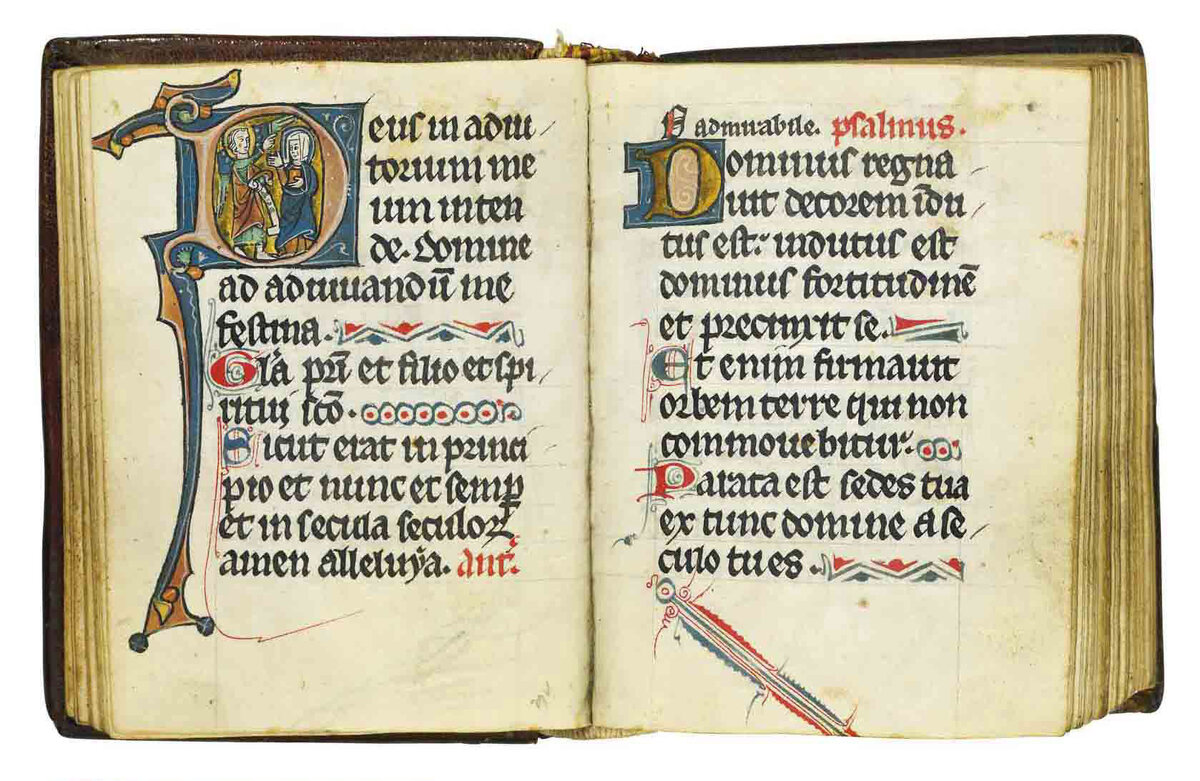 Deus in adiu
torium me
um inten
de. Domine
ad adiuvandū me
festina.
Gl̄a pr̄i et filio et spi
ritui sc̄o.
Sicut erat in princi
pio et nunc et semꝑ
et in secula seculoꝝ
amen alleluya. ant̄.
admirabile. psalmus.
Dominus regna
uit decorem īdu
tus est. indutus est
dominus fortitudinē
et precinxit se.
Et enim firmauit
orbem terre qui non
commouebitur.
Parata est sedes tua
ex tunc domine a se
culo tu es.